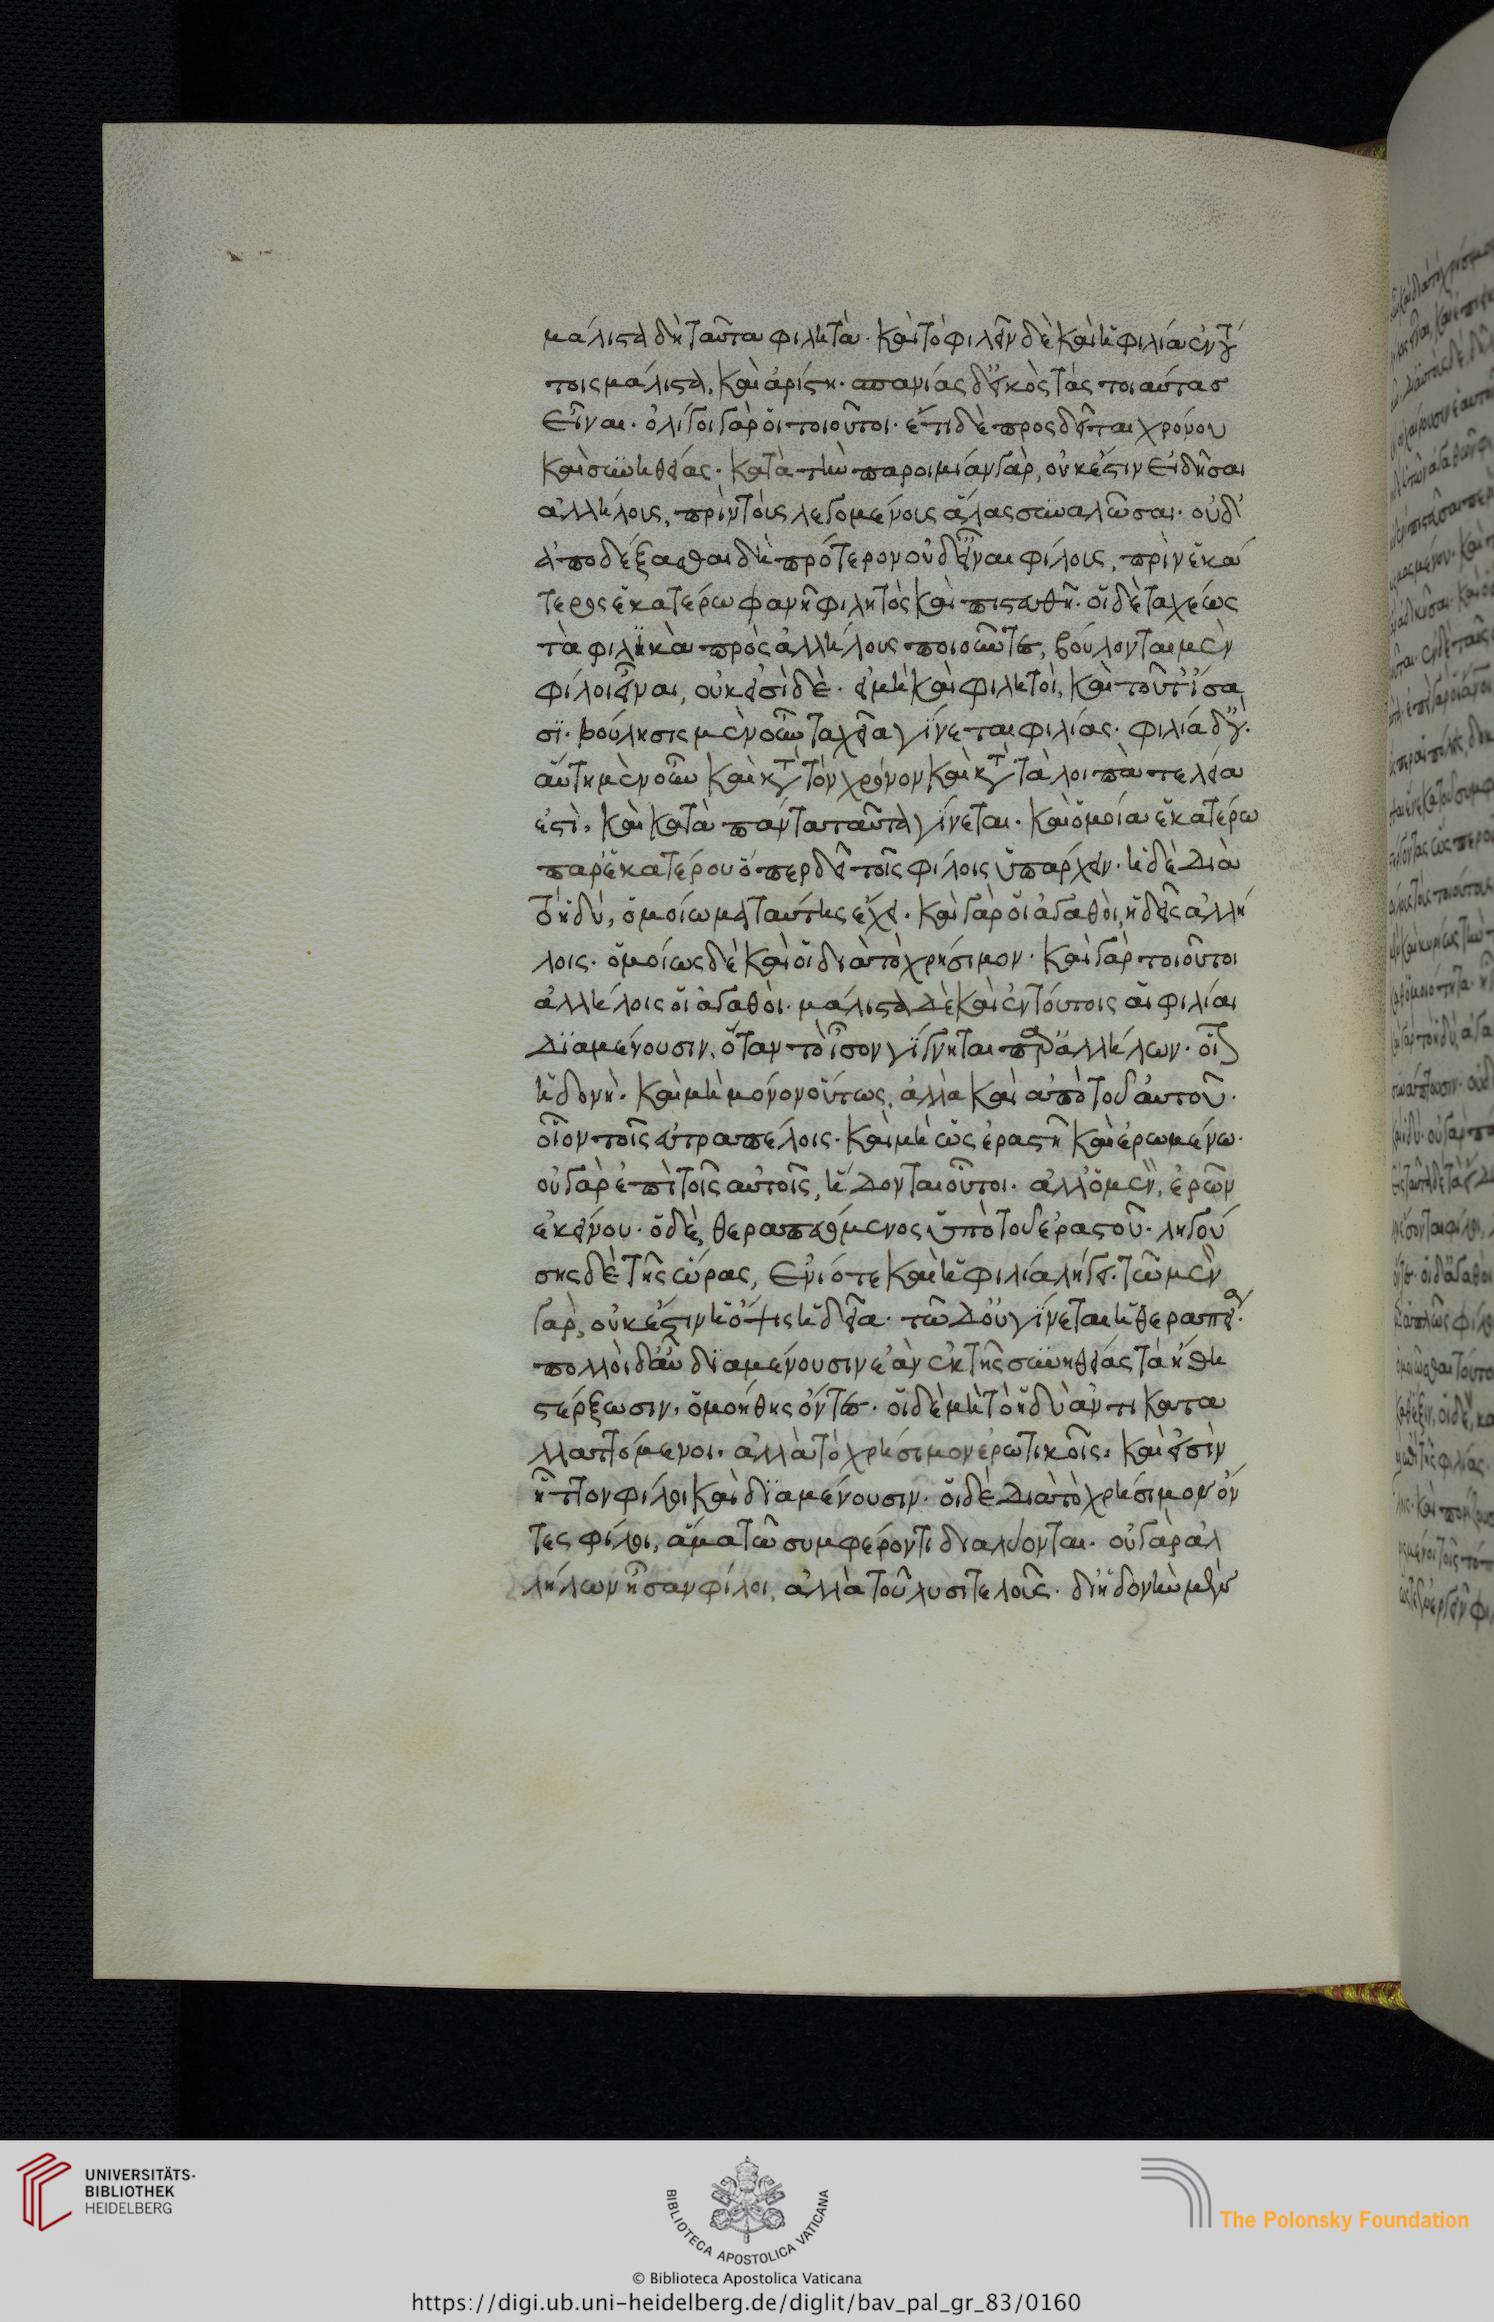 μάλιστα δὴ ταῦτα φιλητά· καὶ τὸ φιλεῖν δὲ καὶ ἡ φιλία ἐν τού
τοις μάλιστα, καὶ ἀρίστη· σπανίας δ' εἰκὸς τὰς τοιαύτας
εἶναι· ὀλίγοι γὰρ οἱ τοιοῦτοι· ἔτι δὲ προσδεῖται χρόνου
καὶ συνηθείας· κατὰ τὴν παροιμίαν γὰρ, οὐκ ἔστιν εἰδῆσαι
ἀλλήλους, πρὶν τοὺς λεγομένους ἅλας συναλῶσαι· οὐδ'
ἀποδέξασθαι δὴ πρότερον οὐδ' εἶναι φίλους, πρὶν ἑκά
τερος ἑκατέρω φανῆ φιλητὸς καὶ πιστευθῆ· οἱ δὲ ταχέως
τὰ φιλϊκὰ πρὸς ἀλλήλους ποιοῦντες, βούλονται μὲν
φίλοι εἶναι, οὐκ εἰσὶ δέ· εἰ μὴ καὶ φιλητοὶ, καὶ τοῦτ' ἴσα
σϊ· βούλησις μὲν οὖν ταχεῖα γίνεται φιλίας· φιλία δ' οὔ·
αὕτη μὲν οὖν καὶ κατὰ τὸν χρόνον καὶ κατὰ τὰ λοιπὰ τελεία
ἐστὶ, καὶ κατὰ πάντα ταῦτὰ γίνεται· καὶ ὅμοία ἑκατέρω
παρ' ἑκατέρου ὅπερ δεῖ τοῖς φίλοις ὑπάρχειν· ἡ δὲ διὰ
τὸ ἡδύ, ὁμοίωμα ταύτης ἔχει· καὶ γὰρ οἱ ἀγαθοὶ, ἡδεῖς ἀλλή
λοις· ὁμοίως δὲ καὶ οἱ διὰ τὸ χρήσιμον· καὶ γὰρ τοιοῦτοι
ἀλλήλοις οἱ ἀγαθοί· μάλιστα δὲ καὶ ἐν τούτοις αἱ φιλίαι
διαμένουσιν, ὅταν τὸ ἶσον γίγνηται παρ' ἀλλήλων· οἷον
ἡδονή· καὶ μὴ μόνον οὕτως, ἀλλὰ καὶ ἀπὸ τοῦ αὐτοῦ·
οἷον τοῖς εὐτραπέλοις· καὶ μὴ ὡς ἐραστῆ καὶ ἐρωμένω·
οὐ γὰρ ἐπὶ τοῖς αὐτοῖς, ἥδονται οὗτοι· ἀλλ' ὁ μὲν, ἐρῶν
ἐκείνου· ὁ δὲ, θεραπευόμενος ὑπὸ τοῦ ἐραστοῦ· ληγού
σης δὲ τῆς ὥρας, ἐνιότε καὶ ἡ φιλία λήγει· τῶ μὲν
γὰρ, οὐκ ἔστιν ἡ ὄψις ἡδεῖα· τῶ δ' οὐ γίνεται ἡ θεραπεία·
πολλοὶ δ' αὖ διαμένουσιν ἐὰν ἐκ τῆς συνηθείας τὰ ἤθη
στέρξωσιν, ὁμοήθης ὄντες· οἱ δὲ μὴ τὸ ἡδὺ ἀντικατα
λλαττόμενοι, ἀλλὰ τὸ χρήσιμον ἐρωτικοῖς, καὶ εἰσὶν
ἧττον φίλοι καὶ διαμένουσιν· οἱ δὲ διὰ τὸ χρήσιμον ὄν
τες φίλοι, ἅμα τῶ συμφέροντι διαλύονται· οὐ γὰρ ἀλ
λήλων ἦσαν φίλοι, ἀλλὰ τοῦ λυσιτελοῦς· δι' ἡδονὴν μὲν
UNIVERSITÄTS-
BIBLIOTHEK
HEIDELBERG
BIBLIOTECA APOSTOLICA VATICANA
The Polonsky Foundation
© Biblioteca Apostolica Vaticana
https://digi.ub.uni-heidelberg.de/diglit/bav_pal_gr_83/0160